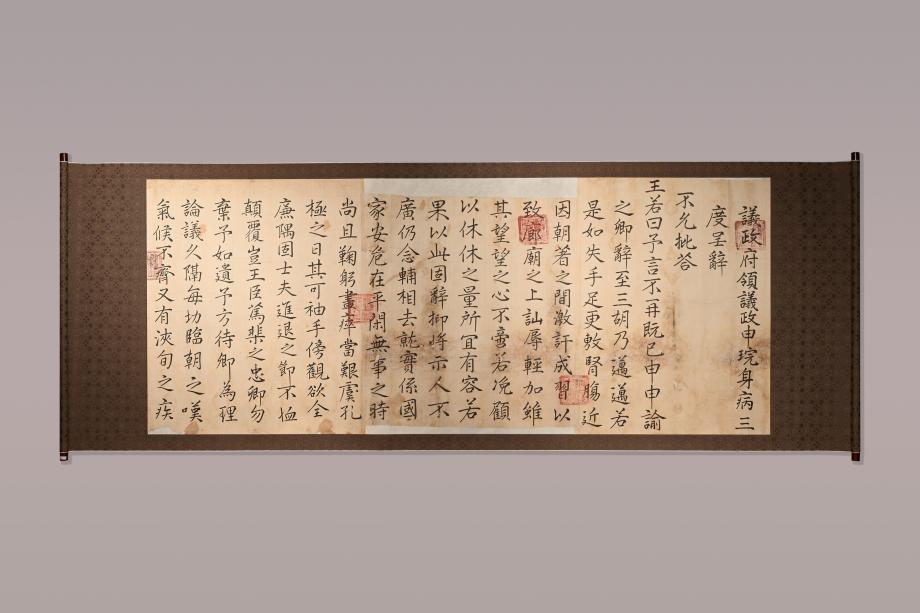 議政府領議政申琓身病三
度呈辭
不允批答
王若曰予言不再旣已申申諭
之卿辭至三胡乃邁邁若
是如失手足更敷腎腸近
因朝著之間激訐成習以
致廊廟之上訕辱輕加雖
其望望之心不啻若浼顧
以休休之量所宜有容若
果以此固辭抑將示人不
廣仍念輔相去就實係國
家安危在平閑無事之時
尚且鞠躬盡瘁當艱虞孔
極之日其可袖手傍觀欲全
廉隅固士夫進退之節不恤
顛覆豈王臣篤棐之忠卿勿
棄予如遺予方待卿為理
論議久隔每切臨朝之嘆
氣候不齊又有浹旬之疾